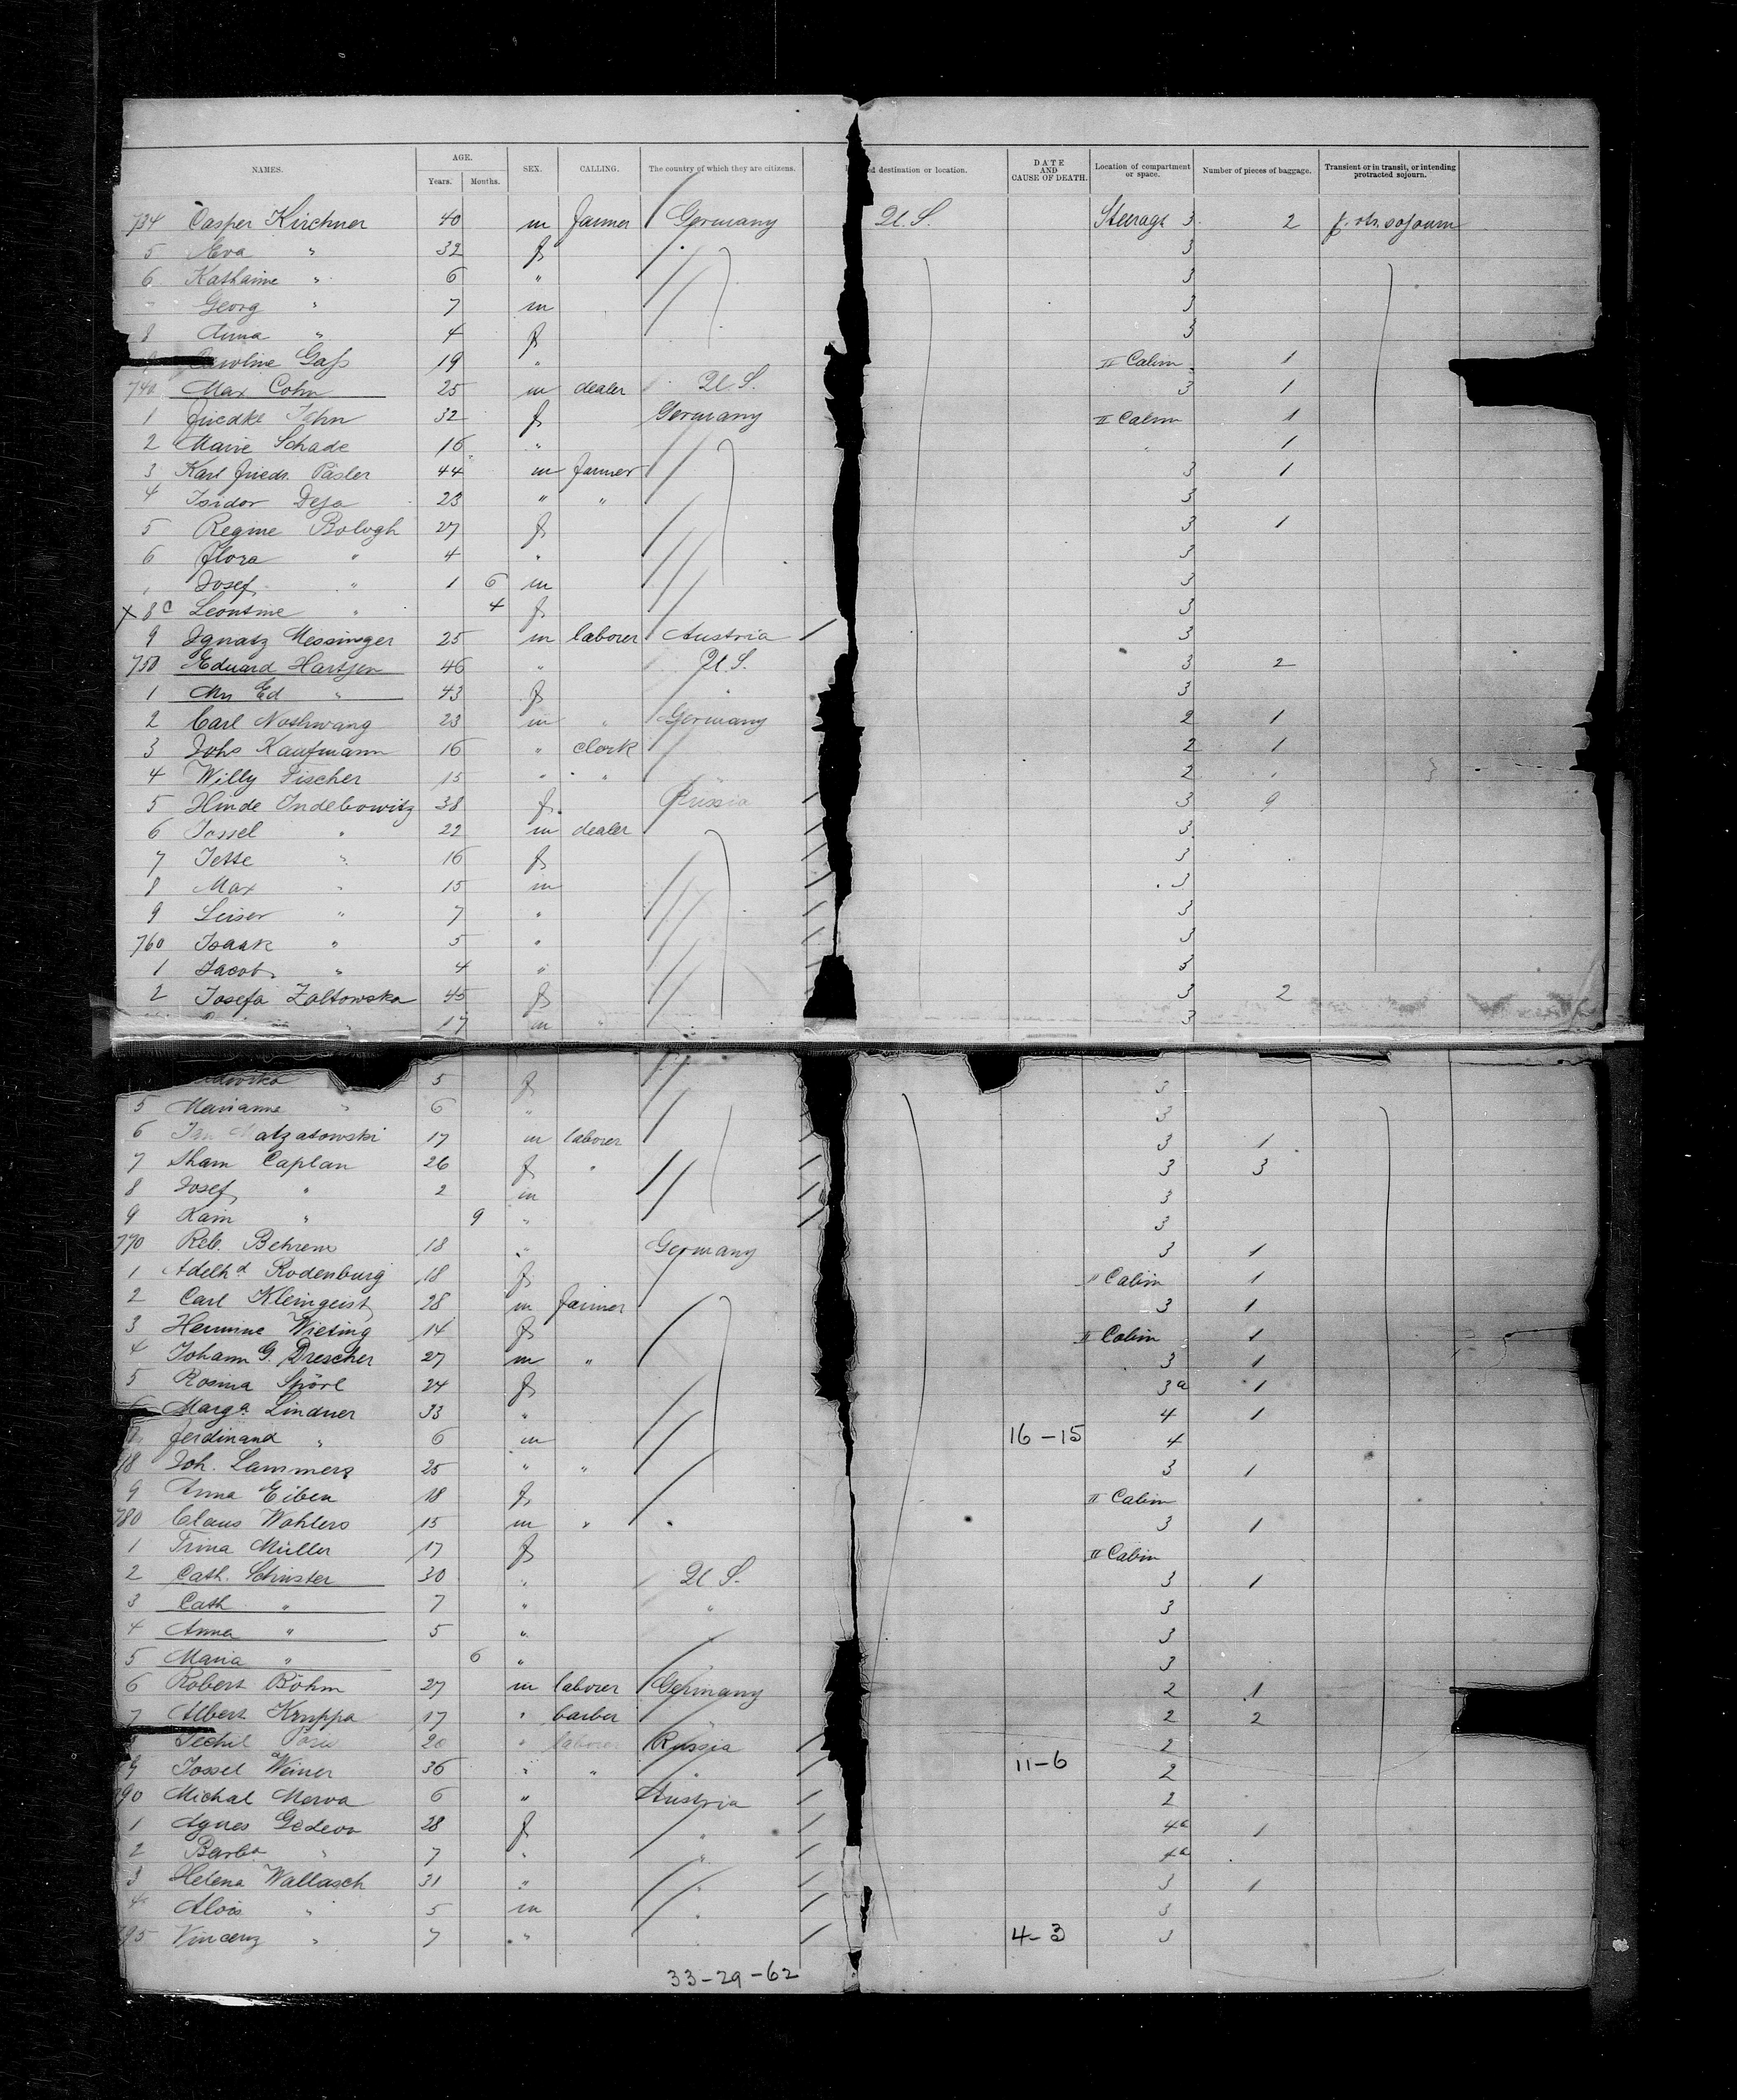 NAMES. AGE. Years. Months. SEX. CALLING. The country of which they are citizens. destination or location. DATE AND CAUSE OF DEATH. Location of compartment or space. Number of pieces of baggage. Transient or in transit, or intending protracted sojourn.
734 Casper Kirchner 40 m farmer Germany U.S. Steerage 3 2 sojourn
5 Eva " 32 f 3
6 Kathaine " 6 " 3
Georg " 7 m 3
8 Anna " 4 f 3
Caroline Gaß 19 " II Cabin 1
740 Max Cohn 25 m dealer U.S. 3 1
1 John 32 f Germany II Cabin 1
2 Marie Schade 16 " " 1
3 Karl Friedr. Päsler 44 m farmer 3 1
4 Isidor Deja 23 " " 3
5 Regine Bologh 27 f 3 1
6 Flora " 4 " 3
Josef " 1 6 m 3
X 8 c Leontine " 4 f 3
9 Ignatz Messinger 25 m laborer Austria 3
750 Eduard Hartjen 46 " U.S. 3 2
1 Mrs Ed " 43 f " 3
2 Carl Noshwang 23 m " Germany 2 1
3 Johs Kaufmann 16 " clerk 2 1
4 Willy Fischer 15 " " 2 "
5 Hinde Indebowitz 38 f Russia 3 9
6 Jossel " 22 m dealer 3
7 Jette " 16 f 3
8 Max " 15 m 3
9 Leiser " 7 " 3
760 Isaak " 5 " 3
1 Jacob " 4 " 3
2 Josefa Zoltowska 45 f 3 2
17 m " 3
5 f 3
5 Marianne " 6 " 3
6 17 m laborer 3 1
7 Sham Caplan 26 f " 3 3
8 Josef " 2 m 3
9 Kain " 9 " 3
770 Reb. Behrens 18 " Germany 3 1
1 Adelhd Rodenburg 18 f II Cabin 1
2 Carl Kleingeist 28 m farmer 3 1
3 Hermine Wieting 14 f II Cabin 1
4 Johann G. Drescher 27 m " 3 1
5 Rosina Spörl 24 f 3a 1
Marga Lindner 33 " 4 1
Ferdinand " 6 m 16-15 4
8 Joh. Lammers 25 " " 3 1
9 Anna Eiben 18 f II Cabin
780 Claus Wohlers 15 m " 3 1
1 Trina Müller 17 f II Cabin
2 Cath. Schuster 30 " U S. 3 1
3 Cath " 7 " " 3
4 Anna " 5 " 3
5 Maria " 6 " 3
6 Robert Böhm 27 m laborer Germany 2 1
7 Albert Kruppa 17 " barber 2 2
20 " laborer Russia 2
9 Jossel Weiner 36 " " " 11-6 2
790 Michal Merva 6 " Austria 2
1 Agnes Gedeon 28 f " 4a 1
2 Barba " 7 " " 4a
3 Helena Wallasch 31 " " 3 1
4 Alois " 5 m " 3
795 Vincenz " 7 " 4-3 3
33-29-62